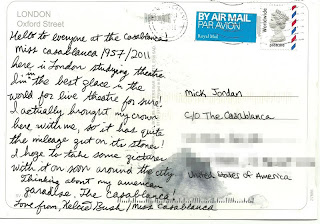 LONDON
Oxford Street
Hello to everyone at the Casablanca!
Miss Casablanca 1957/2011
here in London studying theatre
in the best place in the
world for live theatre for sure!
I actually brought my crown
here with me, so it has quite
the mileage on its stones!
I hope to take some pictures
with it on soon around the city
Thinking about my american
paradise, The Casablanca!
Love from, Kelsie Bush / Miss Casablanca
BY AIR MAIL
PAR AVION
Royal Mail
Worldwide
Mick Jordan
C/O The Casablanca
United States of America